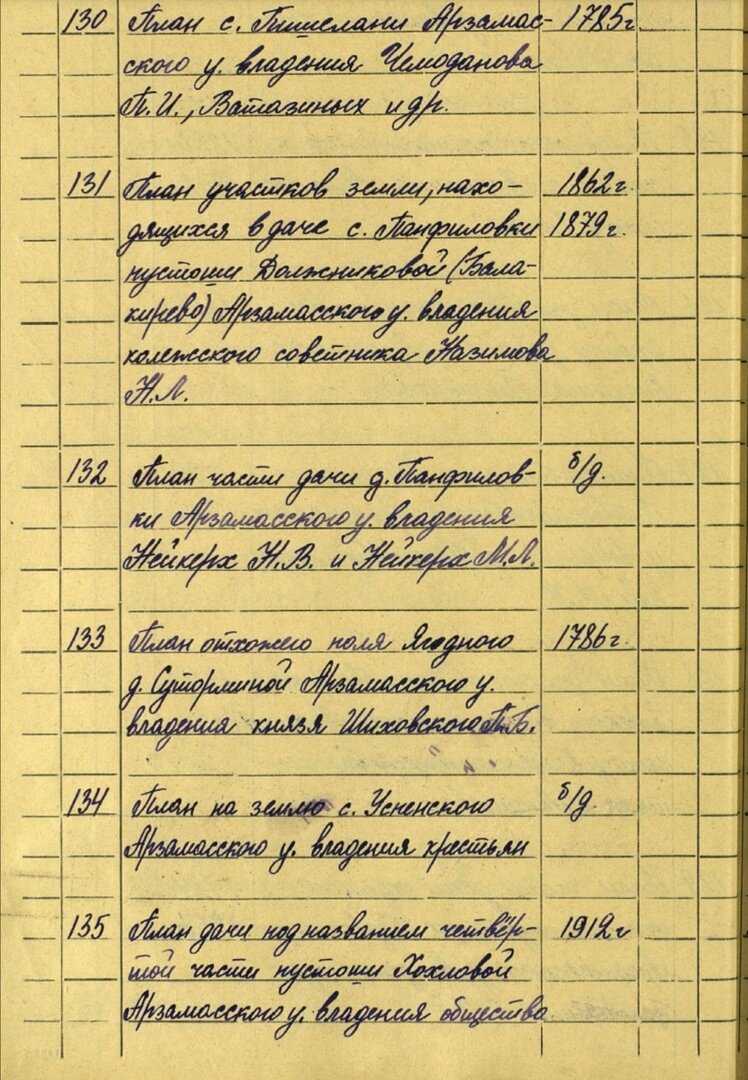 130 План с. Пиислани Арзамас- 1785г
ского у. владения Чемоданова
П.И., Ватазиных и др.
131 План участков земли, нахо- 1862г.
дящихся в даче с. Панфиловки 1879г.
пустоши Должниковой (Бала-
кирево) Арзамасского у. владения
колежского советника Назимова
Н.Л.
132 План части дачи д. Панфилов- б/д.
ки Арзамасского у. владения
Нейкерх Н.В. и Нейкерх М.Л.
133 План отхожего поля Ягодного 1786г.
д. Суторминой Арзамасского у.
владения князя Шиховского П.Б.
134 План на землю с. Усненского б/д.
Арзамасского у. владения крестьян
135 План дачи под названием четвёр- 1912г
той части пустоши Хохловой
Арзамасского у. владения общества